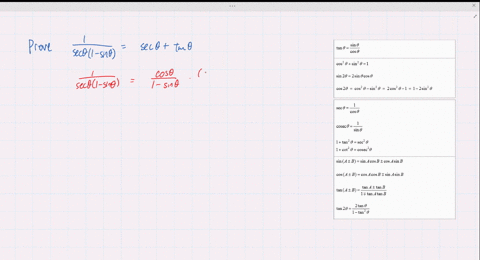 Prove 1/(secθ(1-sinθ)) = secθ + tanθ
1/(secθ(1-sinθ)) = cosθ/(1-sinθ) · (
tanθ = sinθ/cosθ
cos²θ + sin²θ = 1
sin 2θ = 2 sinθ cosθ
cos 2θ = cos²θ − sin²θ = 2cos²θ − 1 = 1 − 2sin²θ
secθ = 1/cosθ
cosecθ = 1/sinθ
1 + tan²θ = sec²θ
1 + cot²θ = cosec²θ
sin(A ± B) = sin A cos B ± sin B cos A
cos(A ± B) = cos A cos B ∓ sin A sin B
tan(A ± B) = (tan A ± tan B)/(1 ∓ tan A tan B)
tan 2θ = 2 tanθ/(1 − tan²θ)